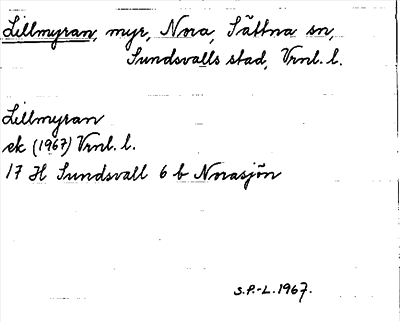 Lillmyran, myr, Nora, Sättna sn,
Sundsvalls stad, Vrnl. l.
Lillmyran
ek (1967) Vrnl. l.
17 H Sundsvall 6 b Norasjön
S.P.-L. 1967.